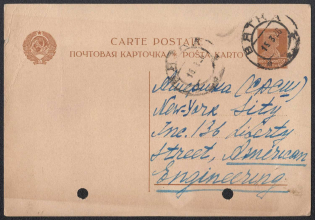 CARTE POSTALE
ПОЧТОВАЯ КАРТОЧКА POŜTA KARTO
ВЯТКА
Америка (САСШ)
New-York Sity
Inc. 136 Liberty
Street, American
Engineering.